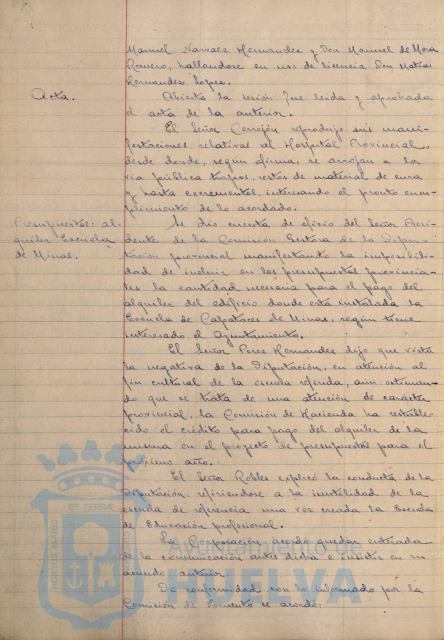 Manuel Narvaez Hernandez y Don Manuel de Mora
Romero, hallandose en uso de licencia Don Matias
Hernandez Lopez.
Acta.
Abierta la sesión fue leida y aprobada
el acta de la anterior.
El Señor Cerrejón reprodujo sus mani-
festaciones relativas al Hospital Provincial,
desde donde, según afirma, se arrojan a la
via pública trapos, restos de material de cura
y hasta excrementos, interesando el pronto cum-
plimiento de lo acordado.
Presupuestos: al-
quiler Escuela
de Minas.
Se dió cuenta de oficio del Señor Presi-
dente de la Comisión Gestora de la Dipu-
tación provincial manifestando la imposibili-
dad de incluir en los presupuestos provincia-
les la cantidad necesaria para el pago del
alquiler del edificio donde está instalada la
Escuela de Capataces de Minas, según tiene
interesado el Ayuntamiento.
El Señor Perez Hernandez dijo que vista
la negativa de la Diputación, en atención al
fin cultural de la escuela referida, aun estiman-
do que se trata de una atención de carácter
provincial, la Comisión de Hacienda ha estable-
cido el crédito para pago del alquiler de la
misma en el proyecto de presupuestos para el
próximo año.
El Señor Robles explicó la conducta de la
Diputación, refiriendose a la inutilidad de la
escuela de referencia una vez creada la Escuela
de Educación profesional.
La Corporación acordó quedar enterada
de la comunicación antes dicha e insistir en su
acuerdo anterior.
De conformidad con lo informado por la
Comisión de Fomento se acordó:
Ayuntamiento de
HUELVA